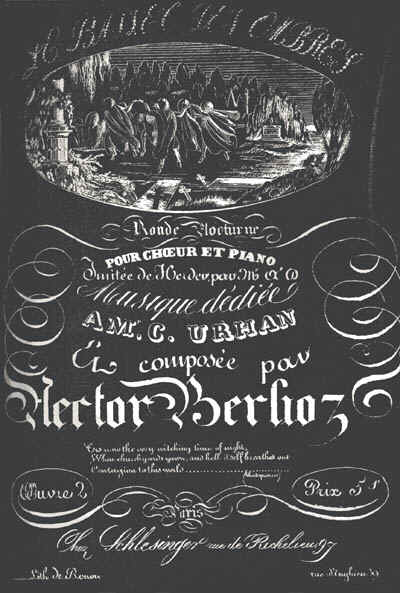 LE BALLET DES OMBRES
Ronde Nocturne
POUR CHŒUR ET PIANO
Imitée de Herder, par Mr
Musique dédiée
A M. C. URHAN
Et composée par
Hector Berlioz
the very witching time of night,
When churchyards yawn, and hell itself breathes out
Contagion to this world
Œuvre 2
Prix 5 f
Paris
Chez Schlesinger rue de Richelieu 97
Lith. de
rue d'Enghien